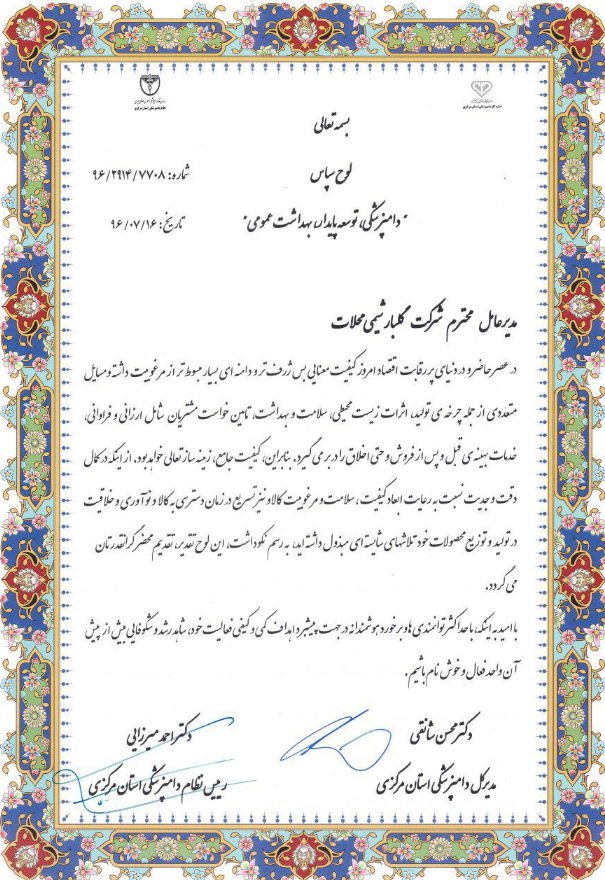 بسمه تعالی
لوح سپاس
شماره: ۹۶/۲۹۱۴/۷۷۰۸
"دامپزشکی، توسعه پایدار، بهداشت عمومی"
تاریخ: ۹۶/۰۷/۱۶
مدیرعامل محترم شرکت گلبار شیمی محلات
در عصر حاضر و در دنیای پر رقابت اقتصاد امروز کیفیت معنایی بس ژرف تر و دامنه ای بسیار مبسوط تر از مرغوبیت داشته و مسایل
متعددی از جمله چرخه ی تولید، اثرات زیست محیطی، سلامت و بهداشت، تامین خواست مشتریان شامل ارزانی و فراوانی،
خدمات بهینه ی قبل و پس از فروش و حتی اخلاق را در بر می گیرد. بنابراین، کیفیت جامع، زمینه ساز تعالی خواهد بود. از اینکه در کمال
دقت و جدیت نسبت به رعایت ابعاد کیفیت، سلامت و مرغوبیت کالا و نیز تسریع در زمان دسترسی به کالا و نوآوری و خلاقیت
در تولید و توزیع محصولات خود تلاشهای شایسته ای مبذول داشته اید، به رسم نکوداشت، این لوح تقدیر، تقدیم محضر گرانقدرتان
می گردد.
با امید به اینکه، با حداکثر توانمندی ها و برخورد هوشمندانه در جهت پیشبرد اهداف کمی و کیفی فعالیت خود، شاهد رشد و شکوفایی بیش از پیش
آن واحد فعال و خوش نام باشیم.
دکتر محسن شانقی
دکتر احمد میرزایی
مدیرکل دامپزشکی استان مرکزی
رییس نظام دامپزشکی استان مرکزی